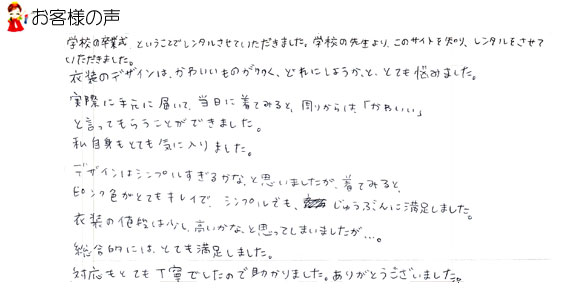 お客様の声
学校の卒業式、ということでレンタルさせていただきました。学校の先生より、このサイトを知り、レンタルをさせて
いただきました。
衣装のデザインは、かわいいものが多く、どれにしようか、と、とても悩みました。
実際に手元に届いて、当日に着てみると、周りからは、「かわいい」
と言ってもらうことができました。
私自身もとても気に入りました。
デザインはシンプルすぎるかな、と思いましたが、着てみると、
ピンク色がとてもキレイで、シンプルでも、じゅうぶんに満足しました。
衣装の値段は少し、高いかな、と思ってしまいましたが…。
総合的には、とても満足しました。
対応もとても丁寧でしたので助かりました。ありがとうございました。